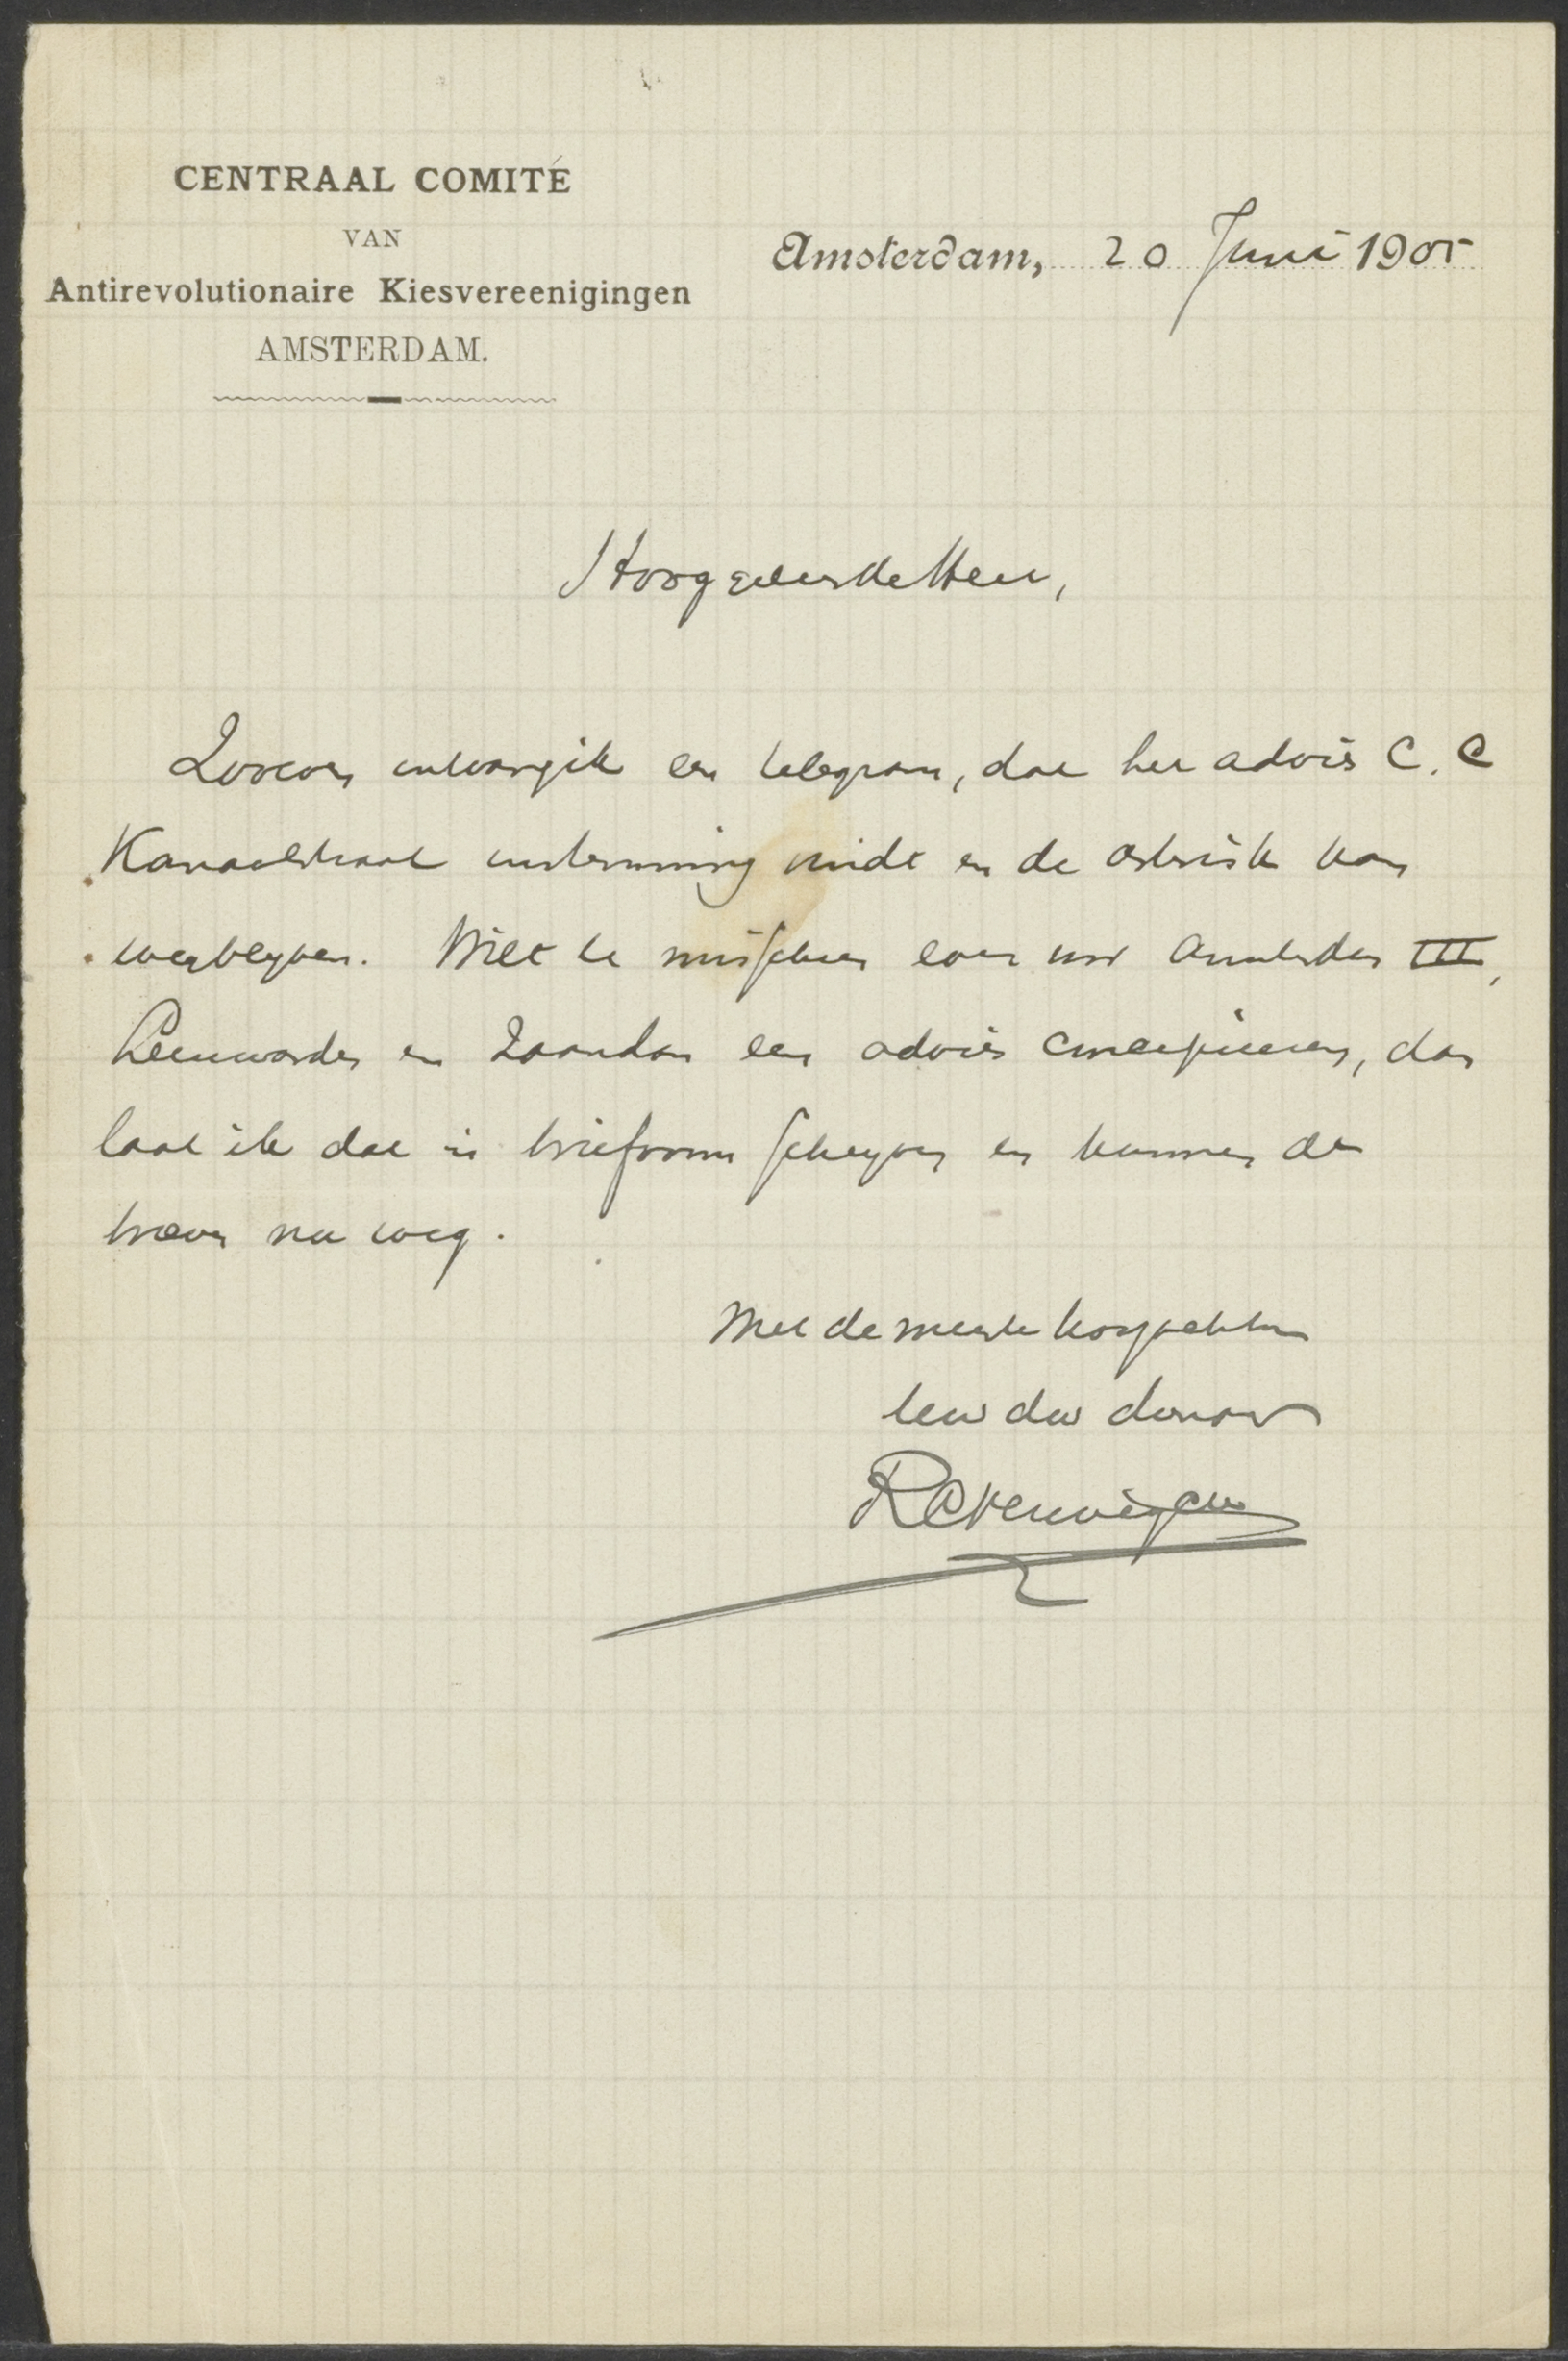 CENTRAAL COMITÉ
VAN
Antirevolutionaire Kiesvereenigingen
AMSTERDAM.
Amsterdam, 20 Juni 1905
Hooggeleerde Heer,
Zooeven ontvang ik een telegram, dat het advies C. C
Kanaalstraat instemming vindt en de asterisk kan
wegblijven. Wilt U misschien even voor Amsterdam III,
Leeuwarden en Zaandam een advies concipieeren, dan
laat ik dat in briefvorm schrijven en kunnen de
brieven nu weg.
Met de meeste hoogachting
Uw dw dienaar